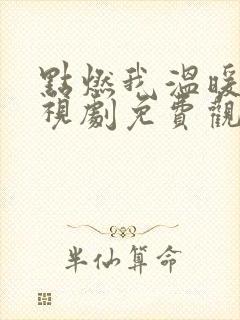 點燃我 溫暖
視劇免費觀
半仙算命